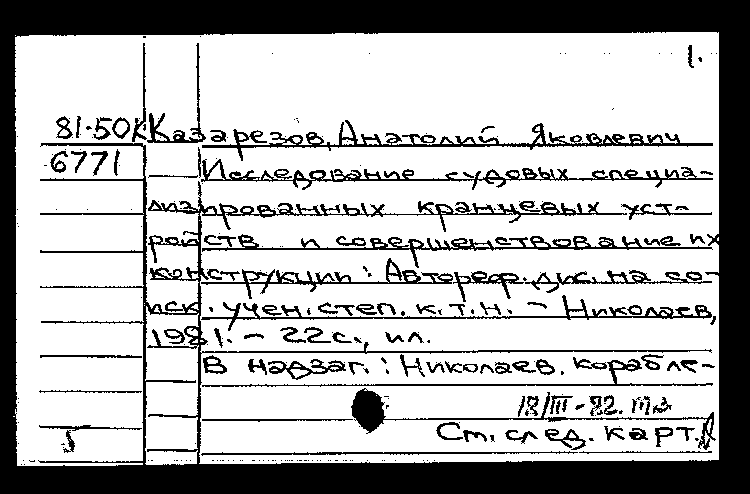 1.
81-50К Казарезов, Анатолий Яковлевич
6771 Исследование судовых специа-
лизированных кранцевых уст-
ройств и совершенствование их
конструкции: Автореф. дис. на со-
иск. учен. степ. к.т.н. - Николаев,
1981. - 22с., ил.
В надзаг.: Николаев. корабле-
18/III-82.
См. след. карт.